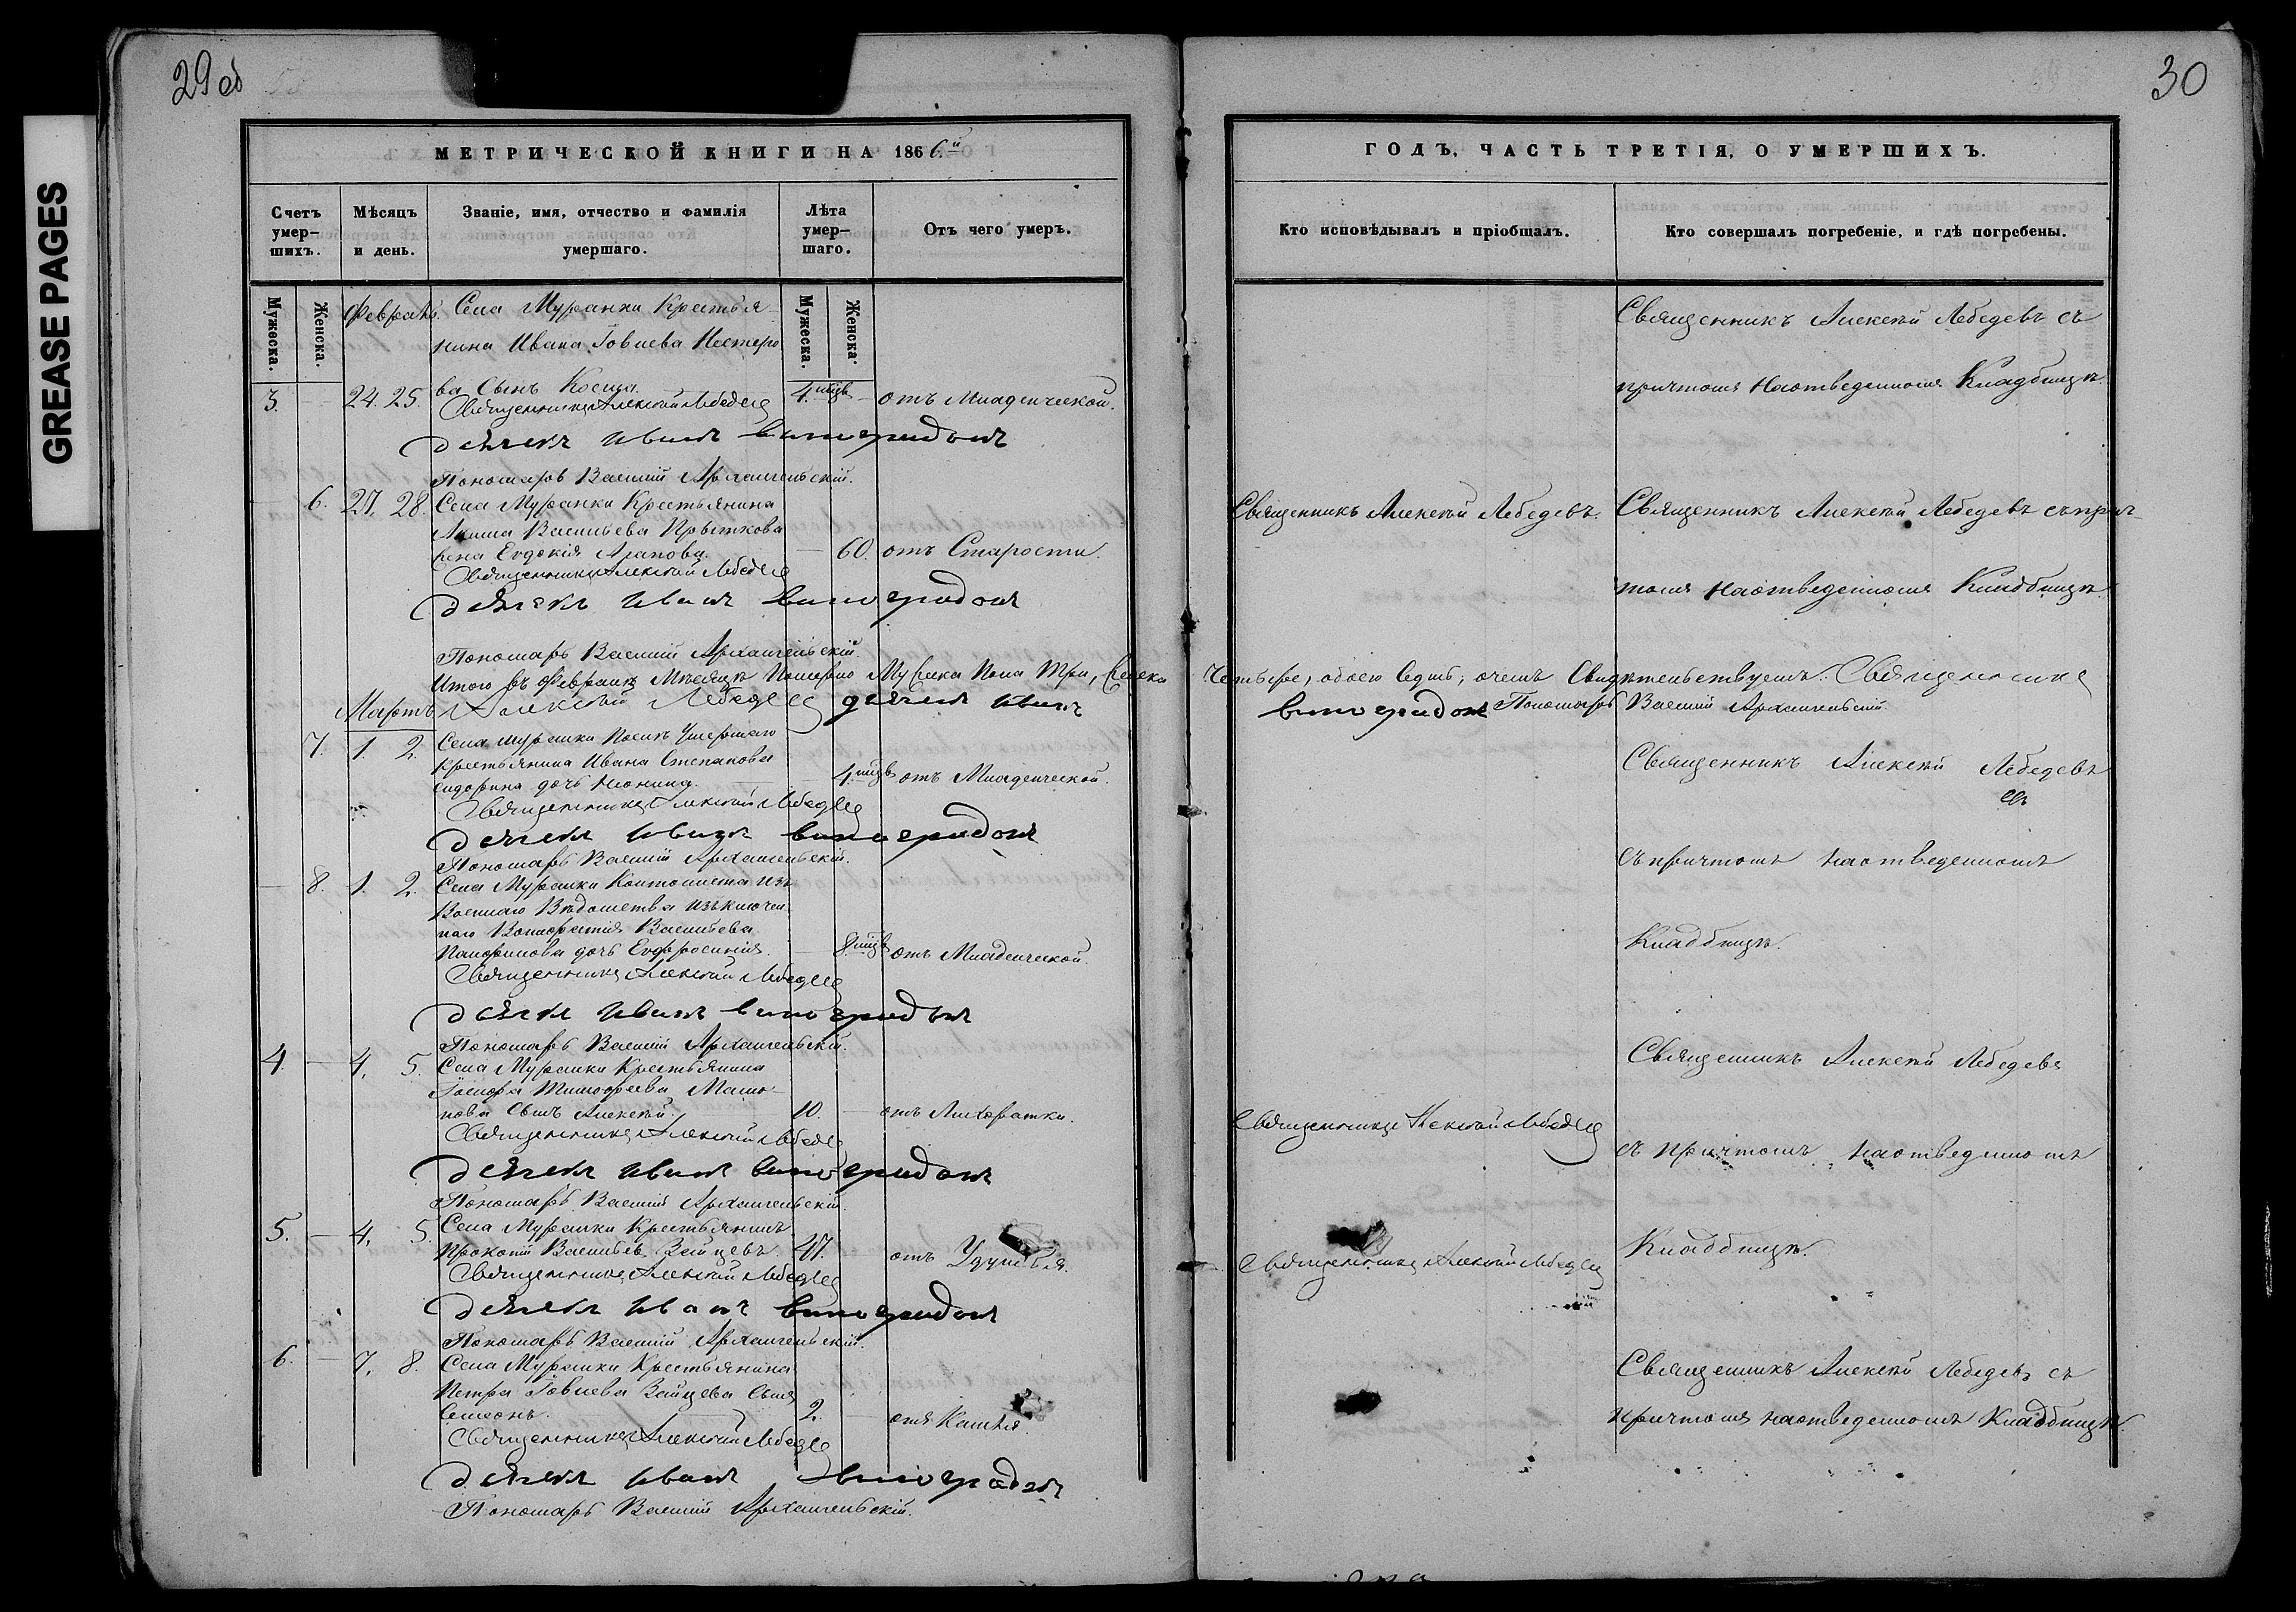 GREASE PAGES
29 об
МЕТРИЧЕСКОЙ КНИГИ НА 1866.й
Счетъ умер-
шихъ.
Мѣсяцъ
и день.
Званіе, имя, отчество и фамилія
умершаго.
Лѣта
умер-
шаго.
Отъ чего умеръ.
Мужеска.
Женска.
Мужеска.
Женска.
Февраль. Села Муранки Крестья-
нина Ивана Іовлева Нестеро
3. 24. 25. ва Сынъ Косма. 4. мцв отъ Младенческой.
Священникъ Алексѣй Лебедевъ
дьячекъ Иванъ Виноградовъ
Пономарь Василій Архангельскій.
6. 27. 28. Села Муранки Крестьянина
Васильева
жена Евдокія 60. отъ Старости.
Священникъ Алексѣй Лебедевъ
дьячекъ Иванъ Виноградовъ
Пономарь Василій Архангельскій.
Итого въ Февралѣ Мѣсяцѣ Померло Мужска Пола Три, Женска
Мартъ Алексѣй Лебедевъ дьячекъ Иванъ
7. 1. 2. Села Муранки Умершаго
Крестьянина Ивана Степанова
Сидорина дочь Неонила. 4. мцв отъ Младенческой.
Священникъ Алексѣй Лебедевъ
дьячекъ Иванъ Виноградовъ
Пономарь Василій Архангельскій.
8. 1. 2. Села Муранки Кантониста изъ
Военнаго Вѣдомства изъключен-
наго Васильева
дочь Евфросинія. 8. мцв отъ Младенческой.
Священникъ Алексѣй Лебедевъ
дьячекъ Иванъ Виноградовъ
Пономарь Василій Архангельскій.
4. 4. 5. Села Муранки Крестьянина
Тимофеева
нова Сынъ Алексѣй. 10. отъ Лихоратки.
Священникъ Алексѣй Лебедевъ
дьячекъ Иванъ Виноградовъ
Пономарь Василій Архангельскій.
5. 4. 5. Села Муранки Крестьянинъ
Прокопій Васильевъ Зайцевъ. 47. отъ Удушья.
Священникъ Алексѣй Лебедевъ
дьячекъ Иванъ Виноградовъ
Пономарь Василій Архангельскій.
6. 7. 8. Села Муранки Крестьянина
Петра Іовлева Зайцева Сынъ
Симеонъ. 2. отъ Кашля.
Священникъ Алексѣй Лебедевъ
дьячекъ Иванъ Виноградовъ
Пономарь Василій Архангельскій.
30
ГОДЪ, ЧАСТЬ ТРЕТІЯ, О УМЕРШИХЪ.
Кто исповѣдывалъ и пріобщалъ.
Кто совершалъ погребеніе, и гдѣ погребены.
Священникъ Алексѣй Лебедевъ съ
причтомъ наотведенномъ Кладбищѣ.
Священникъ Алексѣй Лебедевъ. Священникъ Алексѣй Лебедевъ съ прич-
томъ наотведенномъ Кладбищѣ.
Четыре, обоего Седмь, очемъ Свидѣтельствуемъ. Священникъ
Виноградовъ Пономарь Василій Архангельскій.
Священникъ Алексѣй Лебедевъ
съ
съ причтомъ наотведенномъ
Кладбищѣ.
Священникъ Алексѣй Лебедевъ
Священникъ Алексѣй Лебедевъ
съ причтомъ наотведенномъ
Кладбищѣ.
Священникъ Алексѣй Лебедевъ
Священникъ Алексѣй Лебедевъ съ
причтомъ наотведенномъ Кладбищѣ.